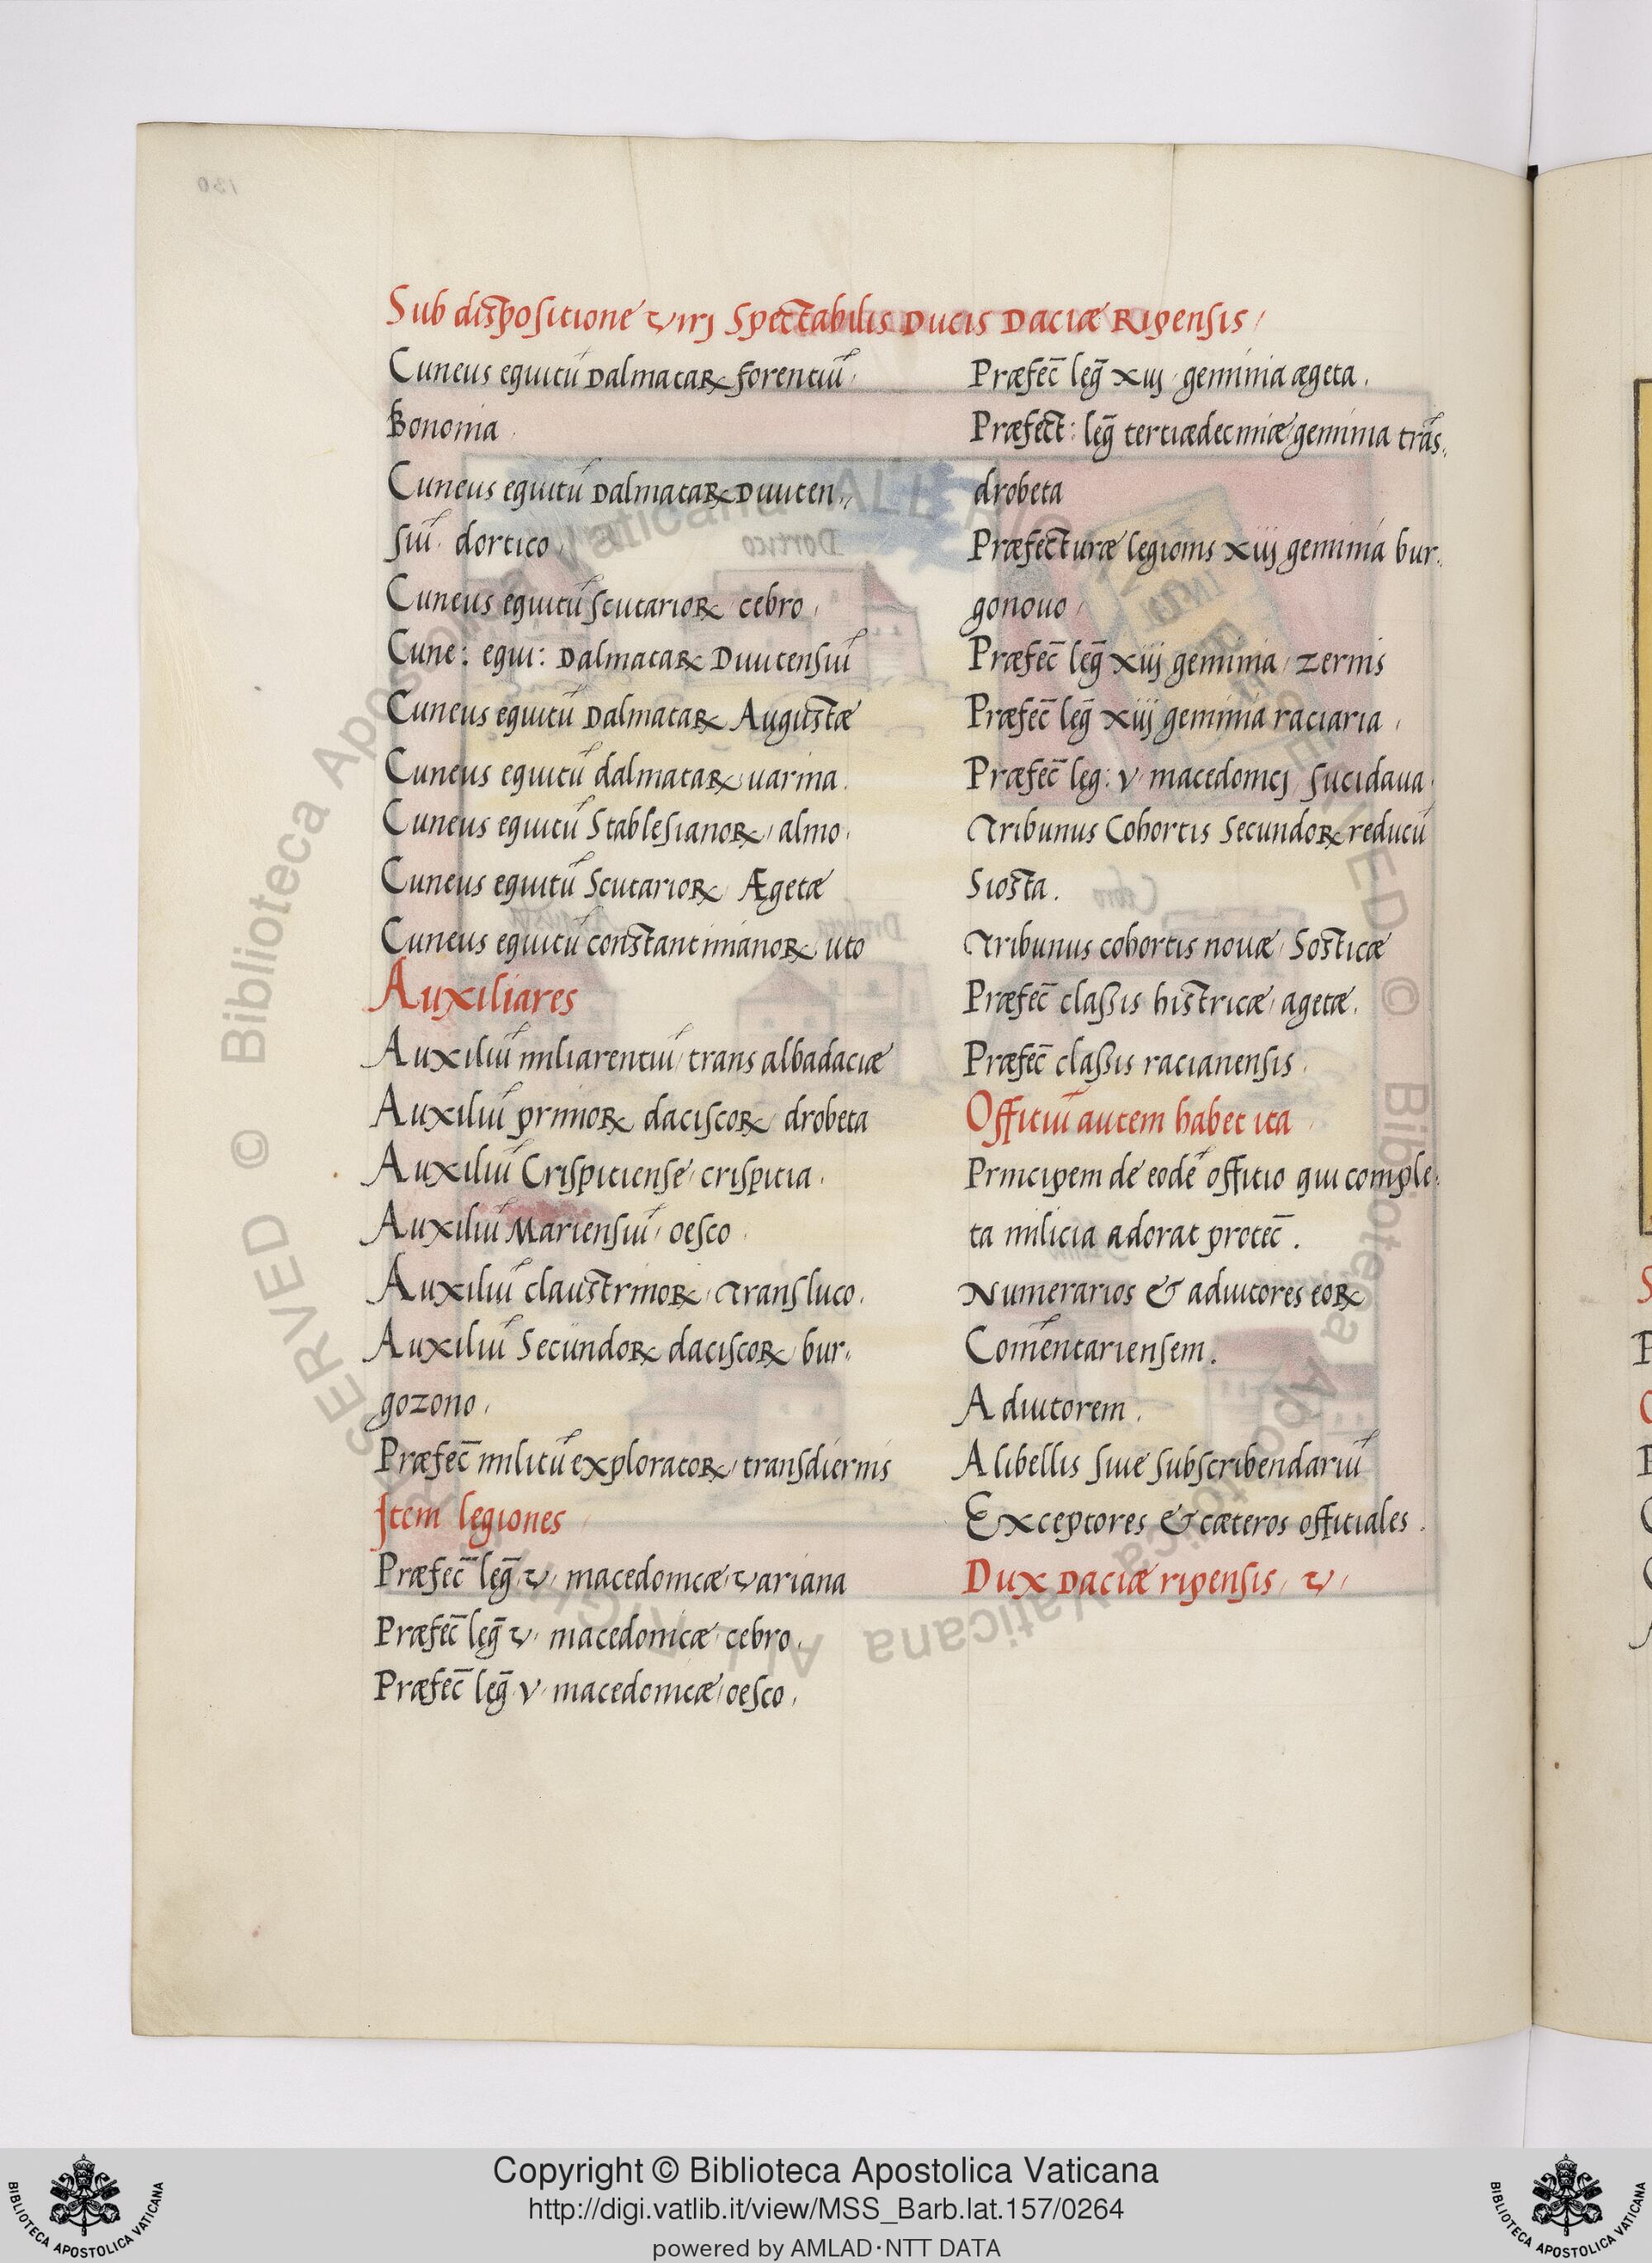 Sub dispositione viri Spectabilis Ducis Daciæ Ripensis
Cuneus equitū Dalmataꝝ forentiū
Bonoma
Cuneus equitū Dalmataꝝ Diuiten,,
siū dortico
Cuneus equitū scutarioꝝ cebro,
Cune: equi: Dalmataꝝ Diuitensiū
Cuneus equitū Dalmataꝝ Augustæ
Cuneus equitū dalmataꝝ uarina.
Cuneus equitū Stablesianoꝝ almo.
Cuneus equitū Scutarioꝝ Ægetæ
Cuneus equitū constantinianoꝝ uto
Auxiliares
Auxiliū miliarentiū trans albadaciæ
Auxiliū primoꝝ daciscoꝝ drobeta
Auxiliū Crispitiense crispitia.
Auxiliū Mariensiū oesco
Auxiliū claustrinoꝝ Transluco.
Auxiliū Secundoꝝ daciscoꝝ bur,,
gozono,
Præfec̄ militū exploratoꝝ transdiernis
Item legiones
Præfec̄ leḡ v macedonicæ variana
Præfec̄ leḡ v macedonicæ cebro.
Præfec̄ leḡ v macedonicæ oesco,
Præfec̄ leḡ xiij gemina ægeta.
Præfect: leḡ tertiædecimæ gemina trās,,
drobeta
Præfecturæ legionis xiij gemina bur,,
gonouo
Præfec̄ leḡ xiij gemina zernis
Præfec̄ leḡ xiij gemina raciaria,
Præfec̄ leg: v macedonicj sucidaua
Tribunus Cohortis Secundoꝝ reducū
Siosta.
Tribunus cohortis nouæ Sosticæ
Præfec̄ classis histricæ agetæ.
Præfec̄ classis racianensis.
Offitiū autem habet ita
Principem de eodē offitio qui comple,,
ta milicia adorat protec̄.
Numerarios & adiutores eoꝝ
Com̄entariensem.
Adiutorem.
A libellis siue subscribendariū
Exceptores & cæteros offitiales.
Dux Daciæ ripensis v
Copyright © Biblioteca Apostolica Vaticana
http://digi.vatlib.it/view/MSS_Barb.lat.157/0264
powered by AMLAD·NTT DATA
BIBLIOTECA APOSTOLICA VATICANA
BIBLIOTECA APOSTOLICA VATICANA